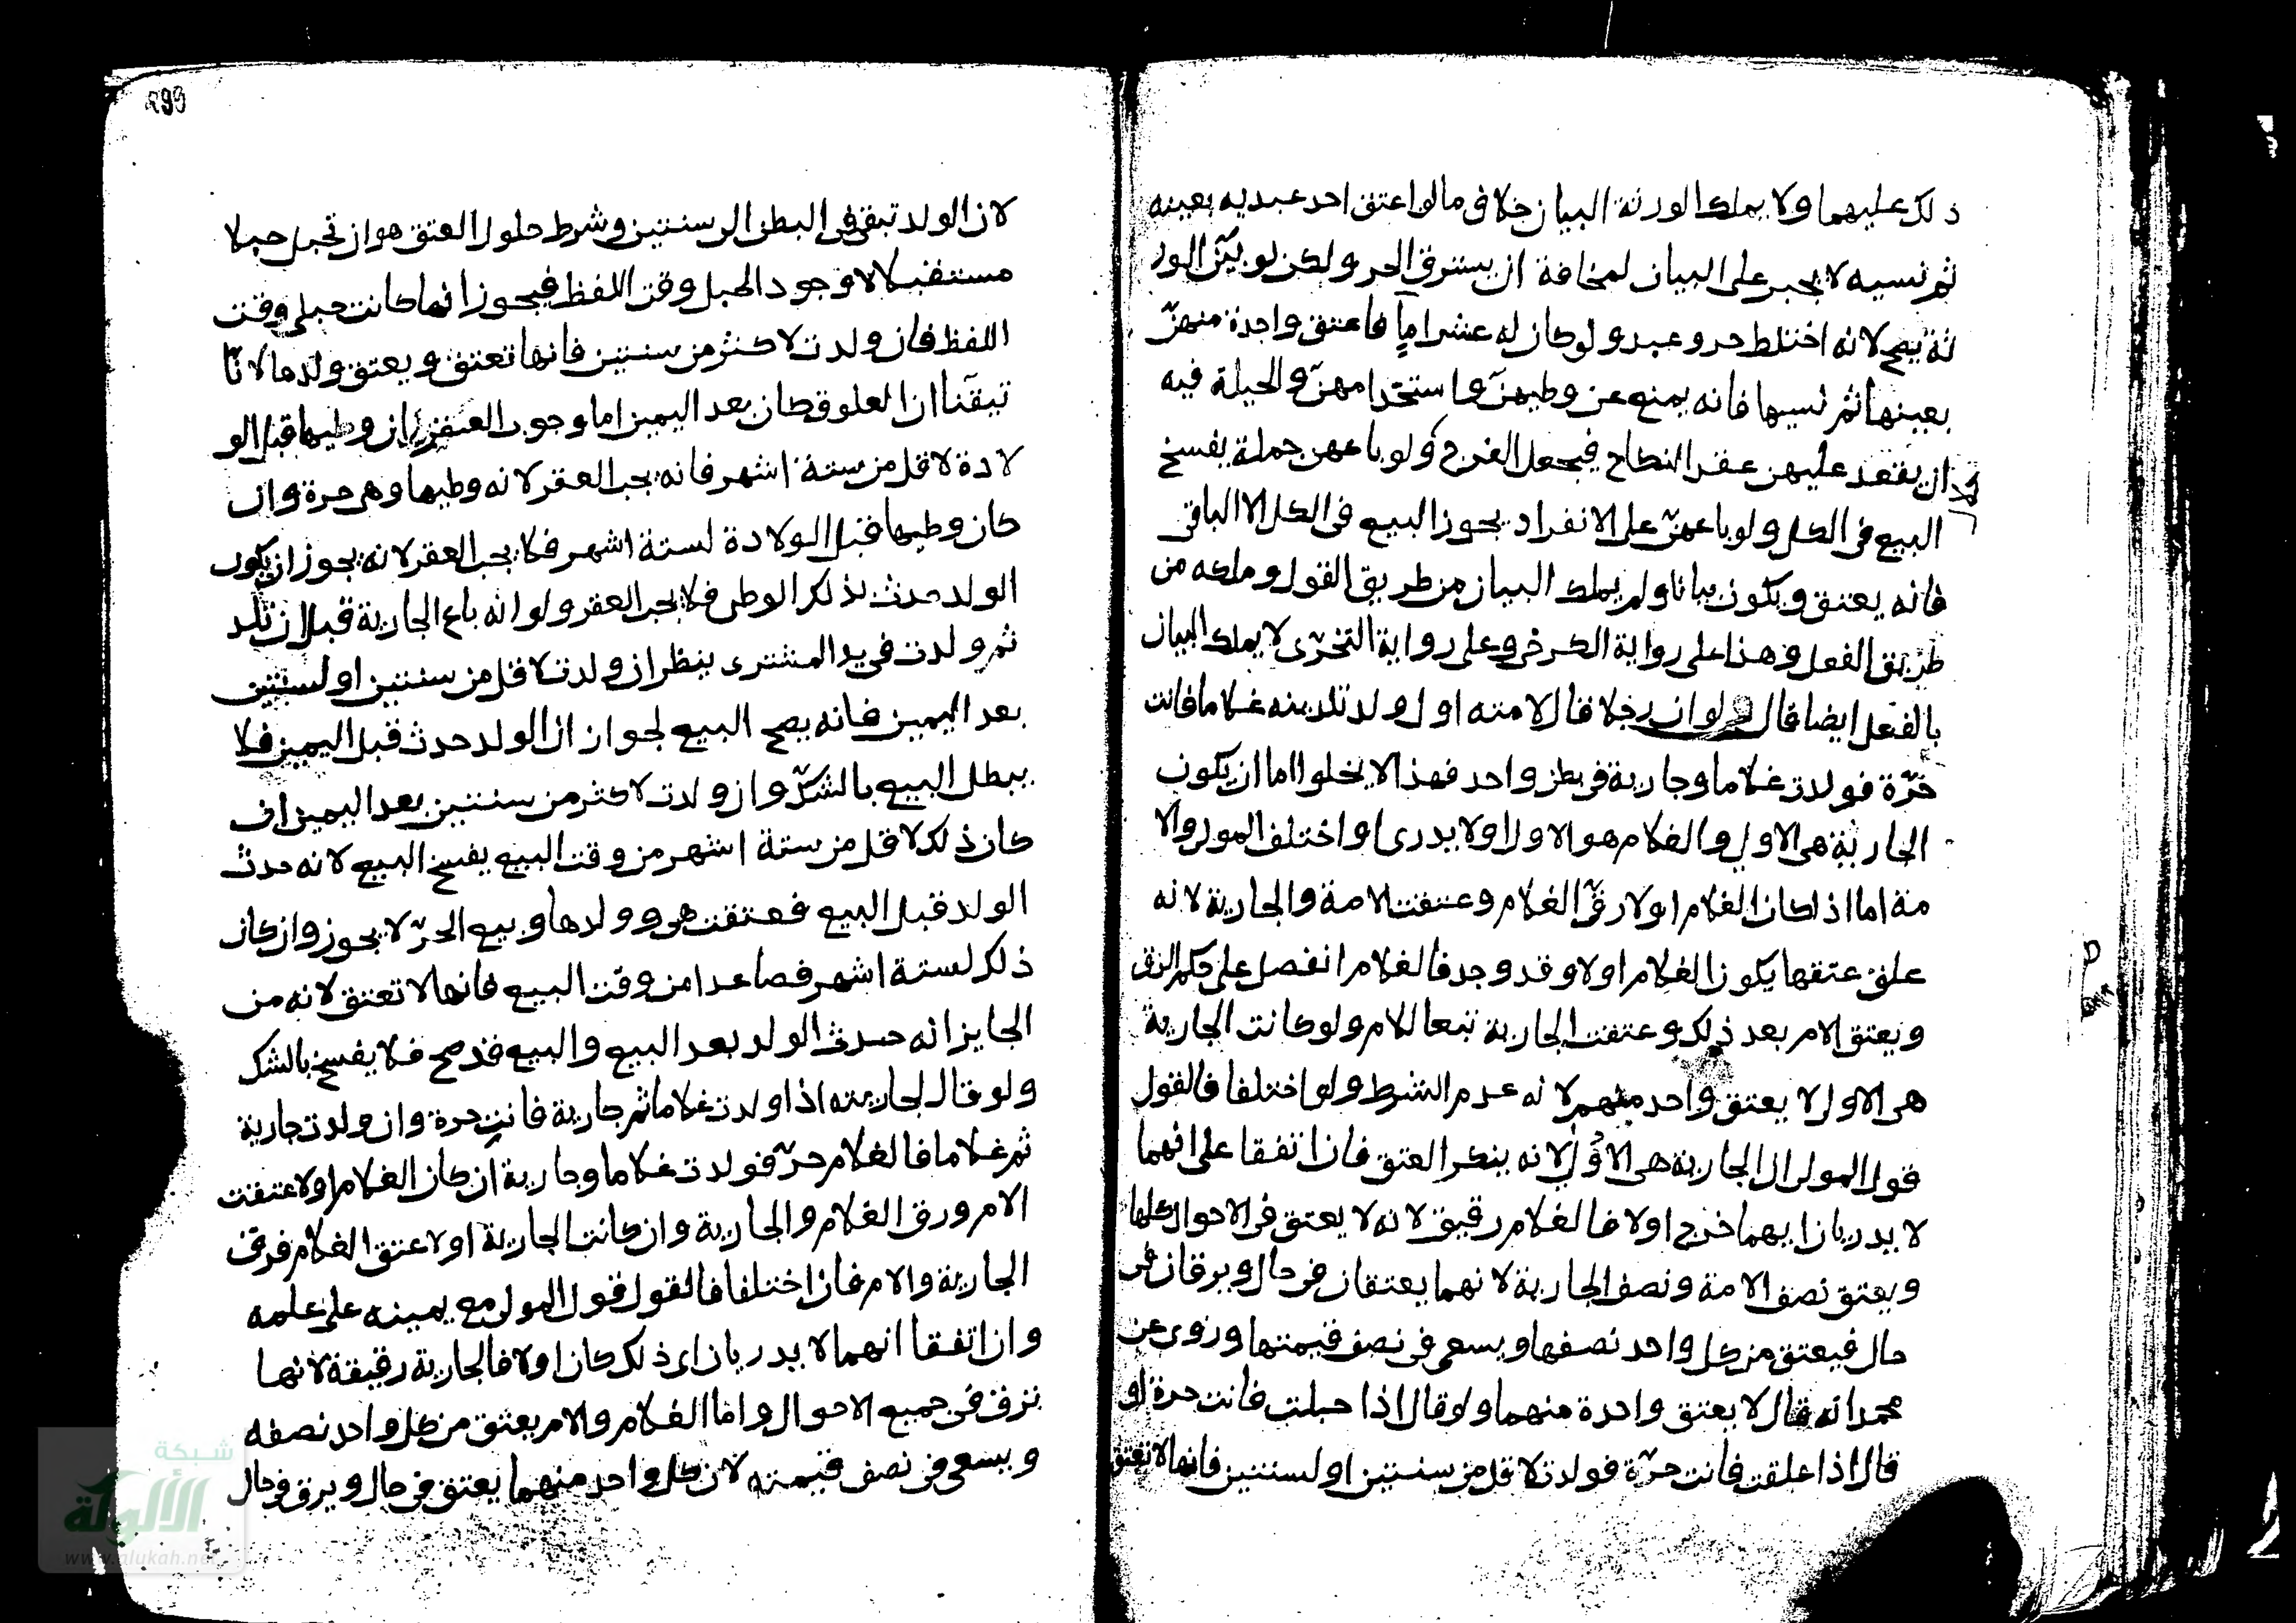 ذلك عليهما ولا يملك الورثة البيان خلاف ما لو اعتق احد عبديه بعينه
ثم نسيه لا يجبر على البيان لمخافة ان يسترق الحر ولكن لو بيّن الور
ثة يصح لانه اختلط حر وعبد ولو كان له عشر اماٍ فاعتق واحدة منهنّ
بعينها ثم نسيها فانه يمنع عن وطيهنّ واستخدامهنّ والحيلة فيه
ان يعقد عليهن عقد النكاح فيجعل الفرج ولو باعهن جملة يفسخ
البيع في الكل ولو باعهنّ على الانفراد يجوز البيع في الكل الا الباقي
فانه يعتق ويكون بيانا ولم يملك البيان من طريق القول وملكه من
طريق الفعل وهذا على رواية الكرخي وعلى رواية التحرّى لا يملك البيان
بالفعل ايضا قال ولو ان رجلا قال لامته اول ولد تلدينه غلاما فانت
حرّة فولدت غلاما وجارية في بطن واحد فهذا لا يخلوا اما ان يكون
الجارية هى الاول والغلام هو الاول او لا يدرى او اختلف المولى والا
مة اما اذا كان الغلام اولا رقّ الغلام وعتقت الامة والجارية لانه
علق عتقها بكون الغلام اولا وقد وجد فالغلام انفصل على حكم الرق
ويعتق الام بعد ذلك وعتقت الجارية تبعا للام ولو كانت الجارية
هى الاول لا يعتق واحد منهم لانه عدم الشرط ولو اختلفا فالقول
قول المولى ان الجارية هى الاول لانه ينكر العتق فان اتفقا على انهما
لا يدريان ايهما خرج اولا فالغلام رقيق لانه لا يعتق في الاحوال كلها
ويعتق نصف الامة ونصف الجارية لانهما يعتقان في حال ويرقان في
حال فيعتق من كل واحد نصفها ويسعى في نصف قيمتها وروى عن
محمد انه قال لا يعتق واحدة منهما ولو قال اذا حبلت فانت حرة او
قال اذا علقت فانت حرّة فولدت لاقل من سنتين او لسنتين فانها لا تعتق
٢٩٩
لان الولد تبقى في البطن الى سنتين وشرط حلول العتق هو ان تحبل حبلا
مستقبلا لا وجود الحبل وقت اللفظ فيجوز انما كانت حبلى وقت
اللفظ فان ولدت لاكثر من سنتين فانها تعتق ويعتق ولدها لانّا
تيقنّا ان العلوق كان بعد اليمين اما وجوب العقر ان وطيها قبل الو
لادة لاقل من ستة اشهر فانه يجب العقر لانه وطيها وهى حرة وان
كان وطيها قبل الولادة لستة اشهر فلا يجب العقر لانه يجوز ان يكون
الولد حدث بذلك الوطى فلا يجب العقر ولو انه باع الجارية قبل ان تلد
ثم ولدت في يد المشترى ينظر ان ولدت لاقل من سنتين او لسنتين
بعد اليمين فانه يصح البيع لجواز ان الولد حدث قبل اليمين فلا
يبطل البيع بالشكّ وان ولدت لاكثر من سنتين بعد اليمين ان
كان ذلك لاقل من ستة اشهر من وقت البيع يفسخ البيع لانه حدث
الولد قبل البيع فعتقت هى وولدها وبيع الحرّ لا يجوز وان كان
ذلك لستة اشهر فصاعدا من وقت البيع فانها لا تعتق لانه من
الجايز انه حدث الولد بعد البيع والبيع قد صح فلا يفسخ بالشك
ولو قال لجاريته اذا ولدت غلاما ثم جارية فانت حرة وان ولدت جارية
ثم غلاما فالغلام حرّ فولدت غلاما وجارية ان كان الغلام اولا عتقت
الام ورق الغلام والجارية وان كانت الجارية اولا عتق الغلام فرق
الجارية والام فان اختلفا فالقول قول المولى مع يمينه على علمه
وان اتفقا انهما لا يدريان اى ذلك كان اولا فالجارية رقيقة لانها
ترق في جميع الاحوال واما الغلام والام يعتق من كل واحد نصفه
ويسعى في نصف قيمته لان كل واحد منهما يعتق في حال ويرق في حال
شبكة
الألوكة
www.alukah.net